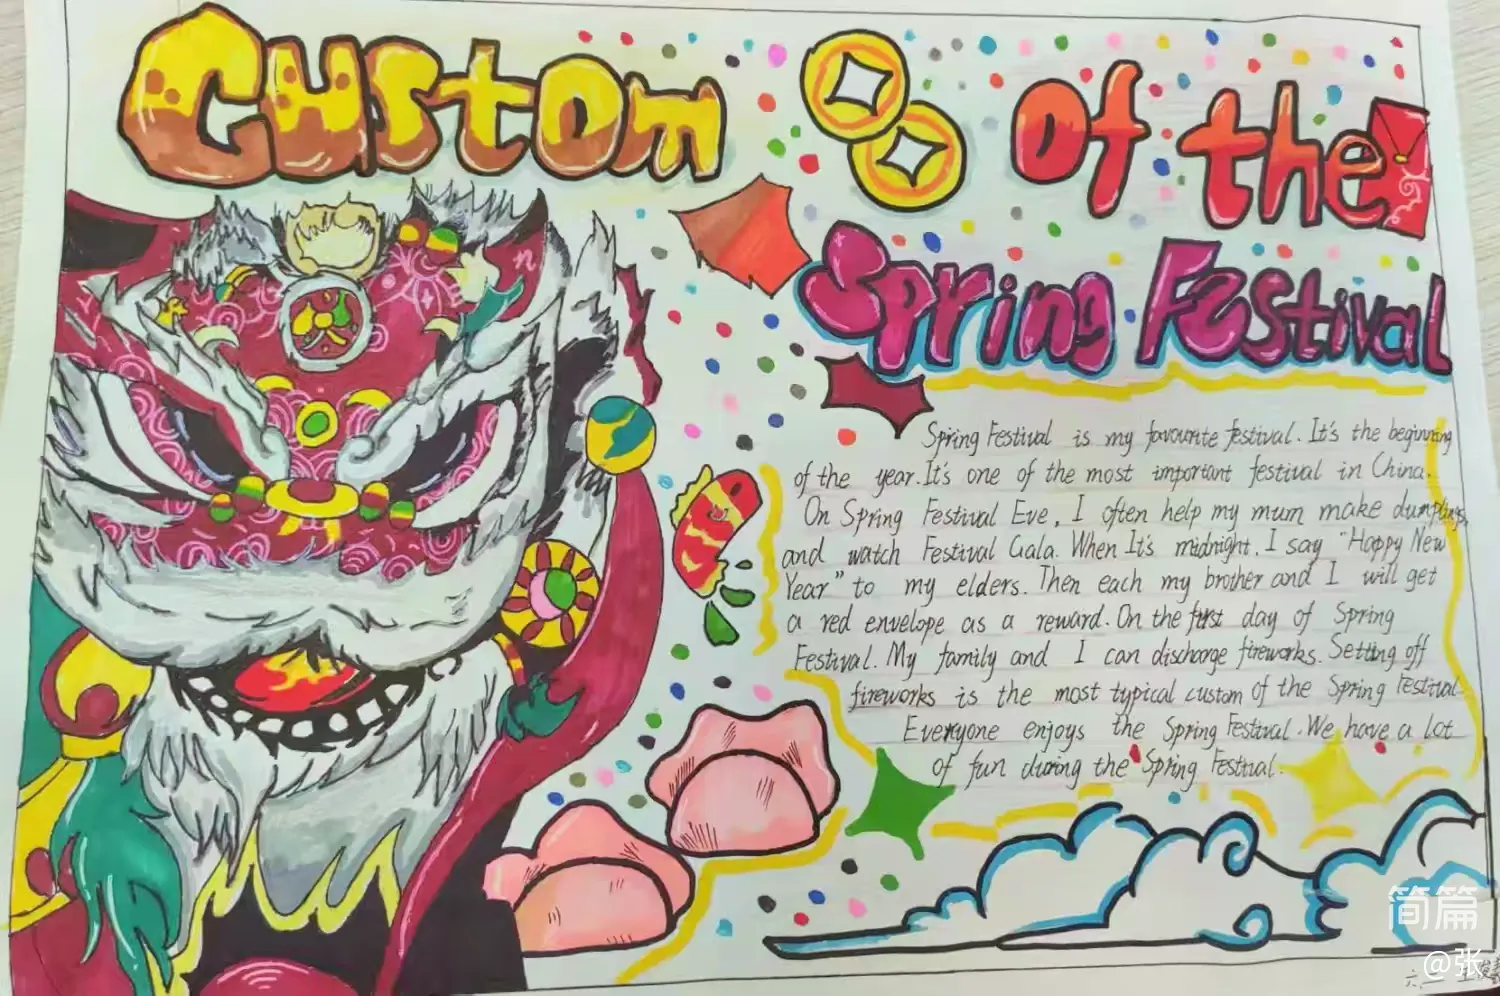 Custom of the
Spring Festival
Spring Festival is my favourite festival. It's the beginning
of the year. It's one of the most important festival in China.
On Spring Festival Eve, I often help my mum make dumplings
and watch Festival Gala. When It's midnight, I say "Happy New
Year" to my elders. Then each my brother and I will get
a red envelope as a reward. On the first day of Spring
Festival. My family and I can discharge fireworks. Setting off
fireworks is the most typical custom of the Spring Festival
Everyone enjoys the Spring Festival. We have a lot
of fun during the Spring Festival.
简篇
@张